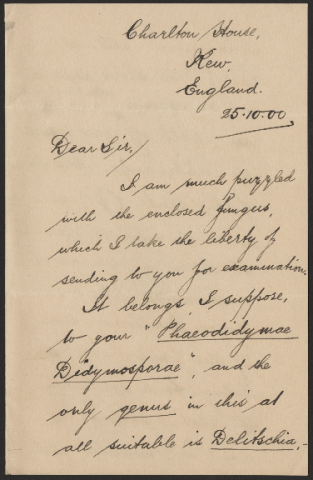 Charlton House,
Kew,
England.
25.10.00
Dear Sir,/
I am much puzzled
with the enclosed fungus,
which I take the liberty of
sending to you for examination.
It belongs, I suppose,
to your "Phaeodidymae
Didymosporae", and the
only genus in this at
all suitable is Delitschia,-